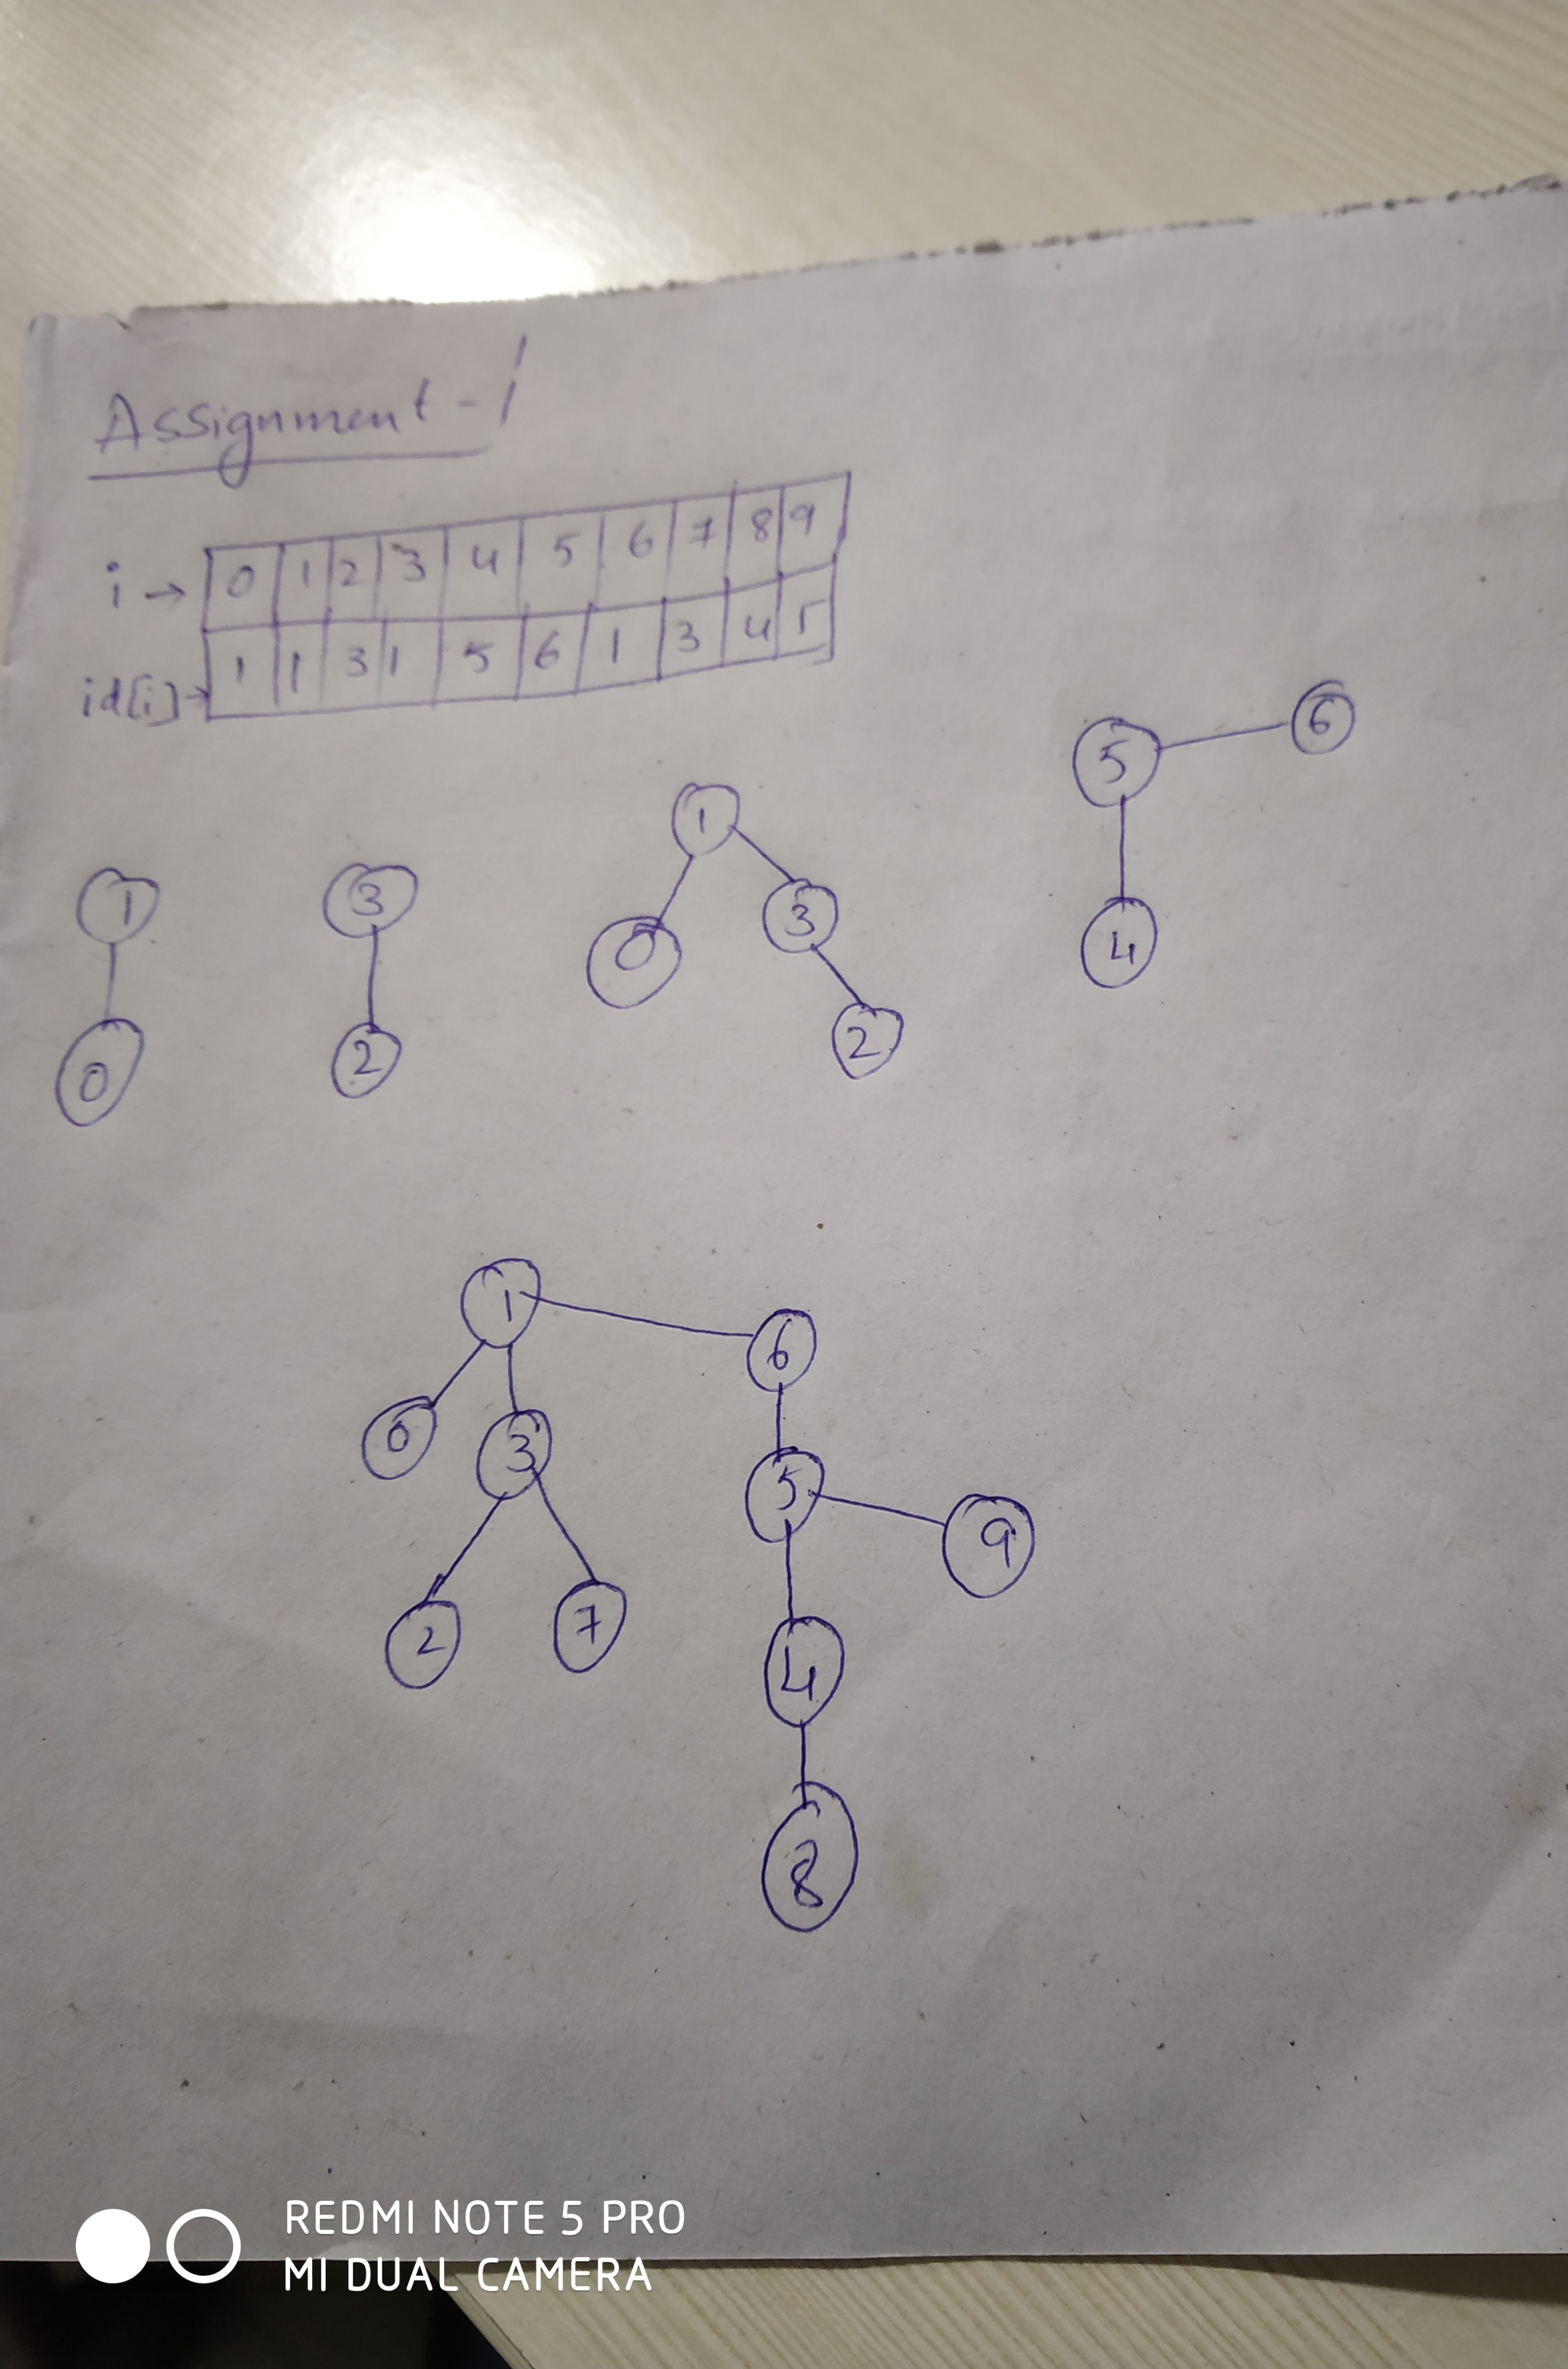 Assignment - 1
i → 0 1 2 3 4 5 6 7 8 9
id[i] → 1 1 3 1 5 6 1 3 4 5
5 6
1
1 3 3
0 4
2
0 2
1
6
0 3
5 9
2 7
4
8
REDMI NOTE 5 PRO
MI DUAL CAMERA